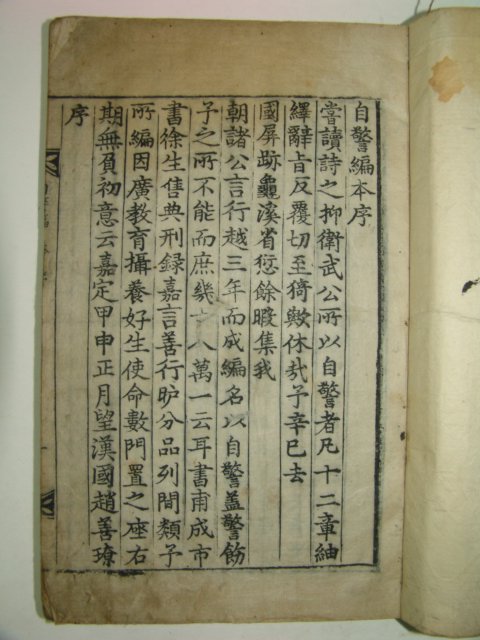 自警編本序
嘗讀詩之抑衛武公所以自警者凡十二章紬
繹辭旨反覆切至猗歟休㢤予辛巳去
國屏跡龜溪省愆餘暇集我
朝諸公言行越三年而成編名以自警盖警飭
子之所不能而庶幾 八萬一云耳書甫成市
書徐生售典刑録嘉言善行昈分品列間類子
所編因廣教育攝養好生使命數門置之座右
期無負初意云嘉定甲申正月望漢國趙善璙
序